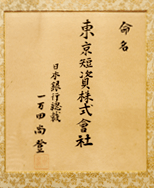 命名
東京短資株式會社
日本銀行總裁
一万田尚登